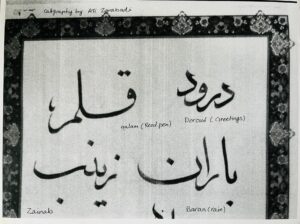 Caligraphy by Ali Zarabadi
درود قلم
qalam (Reed pen) Dorood (Greetings)
باران زینب
Zainab Baran (rain)